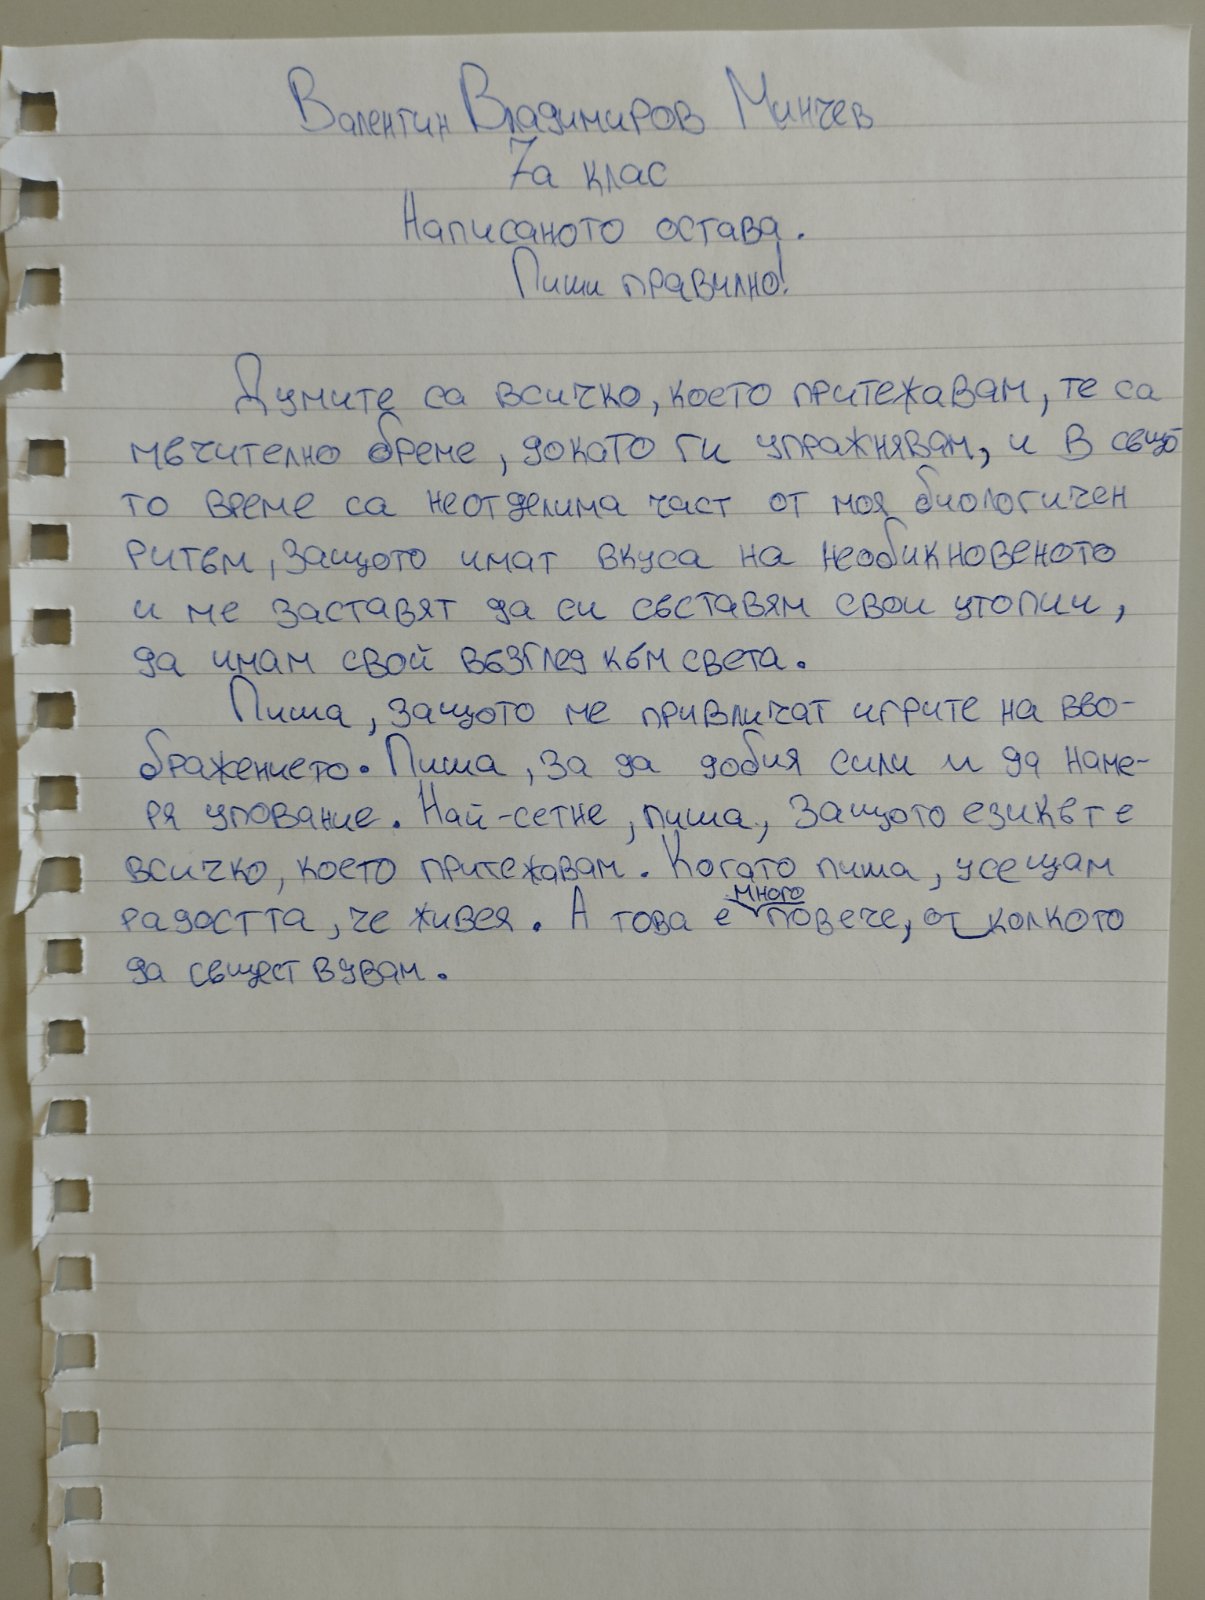 Валентин Владимиров Минчев
7а клас
Написаното остава.
Пиши правилно!
Думите са всичко, което притежавам, те са
мъчително бреме, докато ги упражнявам, и в също
то време са неотделима част от моя биологичен
ритъм, защото имат вкуса на необикновеното
и ме заставят да си съставям свои утопии,
да имам свой възглед към света.
Пиша, защото ме привличат игрите на въо-
бражението. Пиша, за да добия сили и да наме-
ря упование. Най-сетне, пиша, защото езикът е
всичко, което притежавам. Когато пиша, усещам
радостта, че живея. А това е много повече, от колкото
да съществувам.